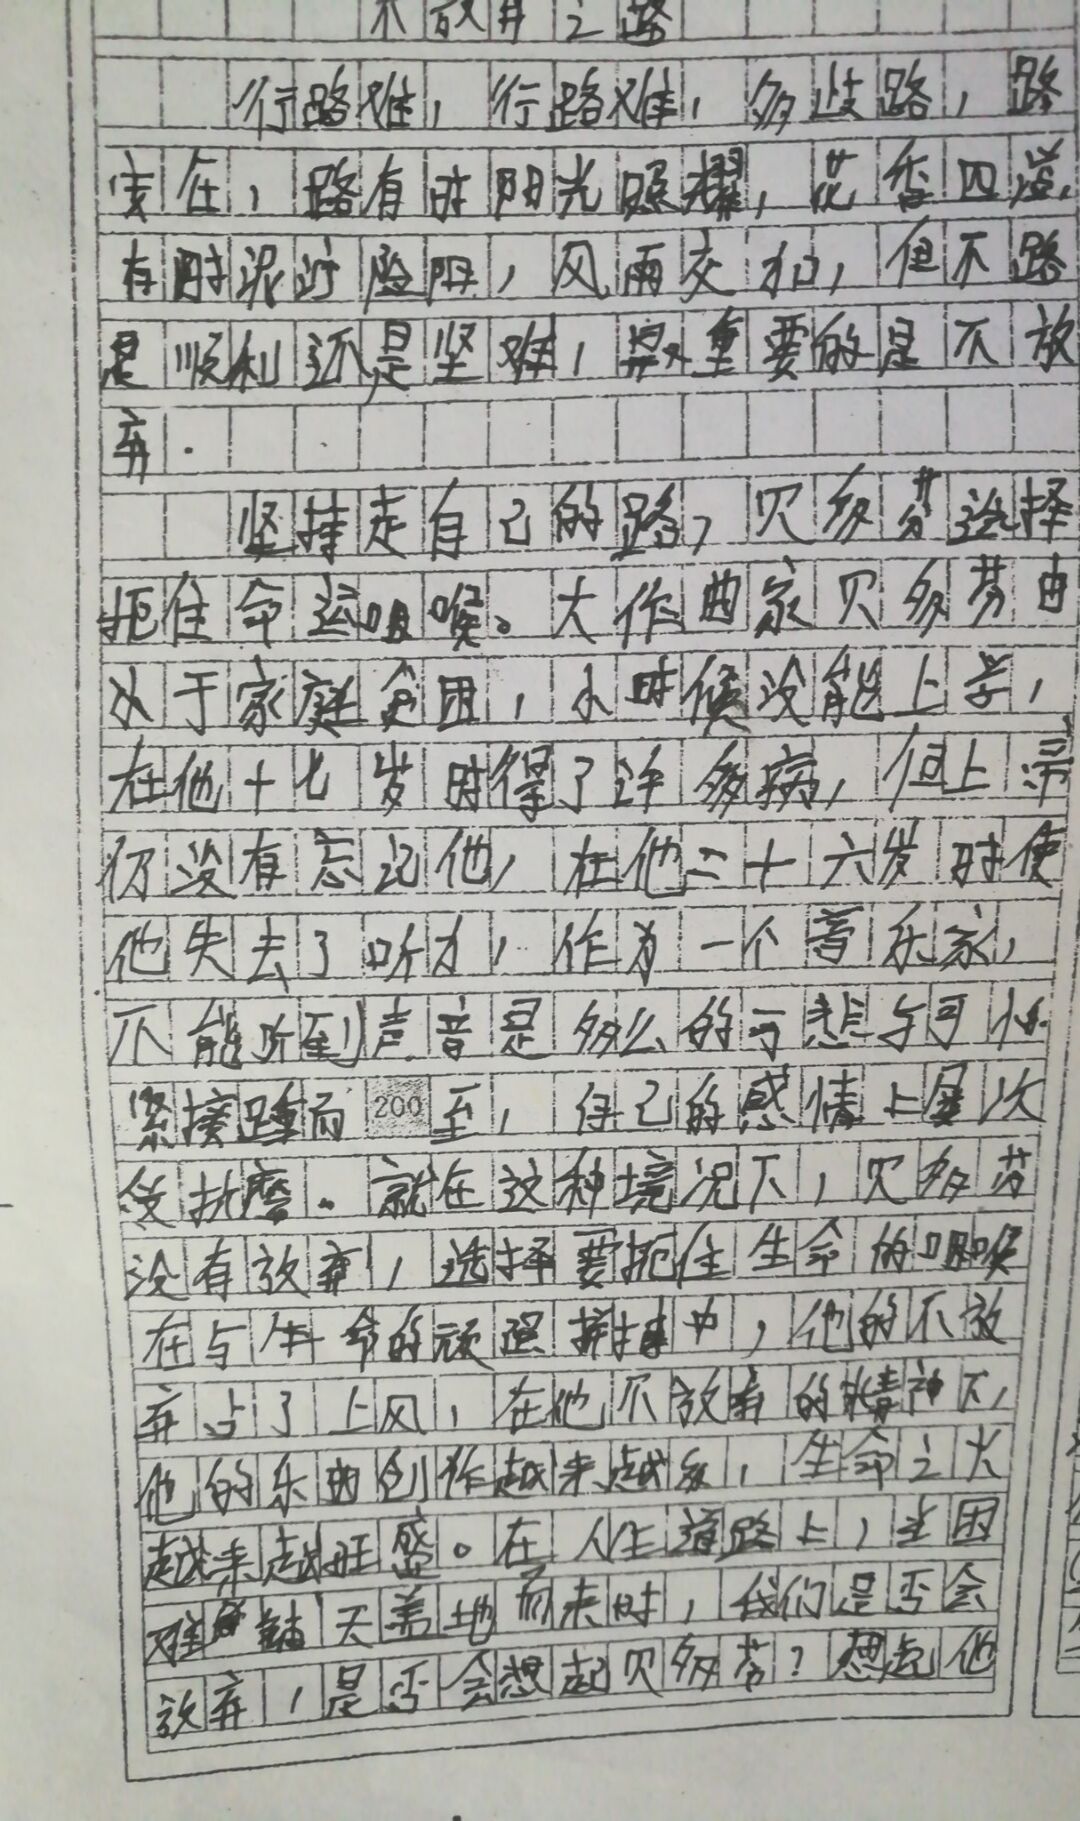 不放弃之路
行路难，行路难，多歧路，路
安在，路有时阳光照耀，花香四溢，
有时泥泞险阻，风雨交加，但不路
是顺利还是坚难，最重要的是不放
弃．
坚持走自己的路，贝多芬选择
扼住命运咽喉。大作曲家贝多芬由
于家庭贫困，小时候没能上学，
在他十七岁时得了许多病，但上帝
仍没有忘记他，在他二十六岁时使
他失去了听力，作为一个音乐家，
不能听到声音是多么的可悲与可怕
紧接踵而200至，自己的感情上屡次
受折磨。就在这种境况下，贝多芬
没有放弃，选择要扼住生命的咽喉
在与生命的顽强拼搏中，他的不放
弃占了上风，在他不放弃的精神下，
他的乐曲创作越来越多，生命之火
越来越旺盛。在人生道路上，当困
难铺天盖地而来时，我们是否会
放弃，是否会想起贝多芬？想起他